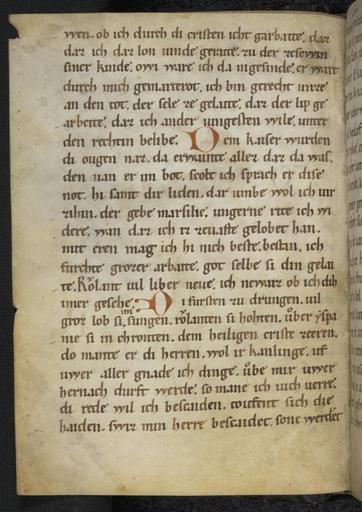 wen. ob ich durch di cristen icht garbatte. daz
daz ich daz lon uinde geraite. zu der zesewin
siner kinde. owi ware ich da ingesinde. er ware
durch mich gemarterot. ich bin gerecht unze
an den tot. der sele ze gelaite. daz der lip ge
arbeite. daz ich ander iungesten wile. unter
den rechtin belibe. Dem kaiser wurden
di ougen naz. da erwainte allez daz da was.
den nan er im bot. scolt ich sprach er dise
not. hi samt dir liden. daz umbe wol ich mir
rihin. der gebe marsilie. ungerne rite ich wi
dere. wan daz ich iz zeuaste gelobet han.
mit eren mag ich hi nich beste. bestan. ich
furchte grozer arbaite. got selbe si din gelai
te. Rolant uil liber neue. ich newaiz ob ich dih
imer gesehe. Di fursten zu drungen. uil
groz lob si im sungen. rolanten si hohten. uber yspa
nie si in chronten. dem heiligen criste zeeren.
do mante er di herren. wol ir karlinge. uf
uwer aller gnade ich dinge. ube mir uwer
hernach durft werde. so mane ich iuch uerre.
di rede wil ich bescaiden. toufent sich die
haiden. swiz min herre bescaidet. sone werdet